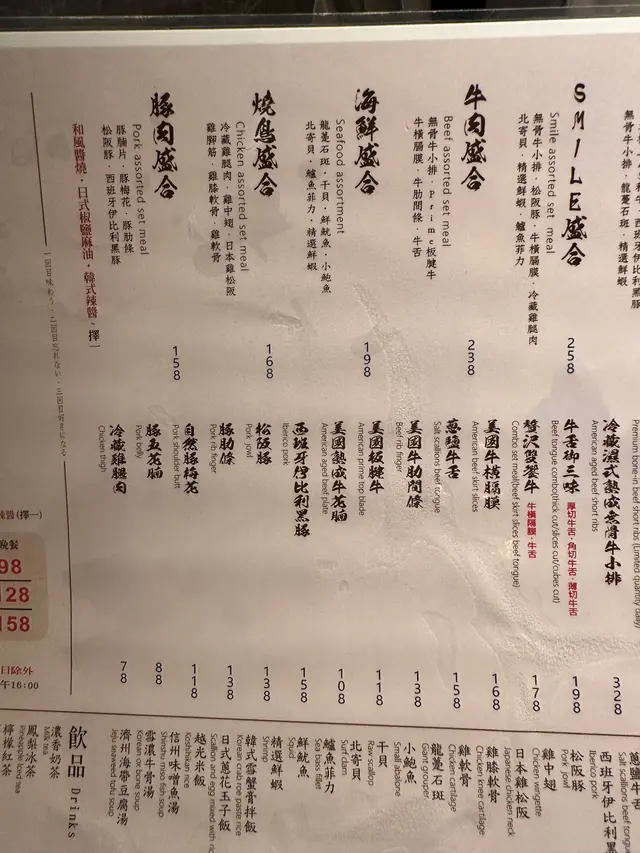 無骨牛小排
牛舌．龍躉石斑．精選鮮蝦
SMILE盛合
Smile assorted set meal
無骨牛小排．松阪豚．牛橫膈膜．冷藏雞腿肉
北寄貝．精選鮮蝦．鱸魚菲力
258
牛肉盛合
Beef assorted set meal
無骨牛小排．Prime板腱牛
牛橫膈膜．牛肋間條．牛舌
238
海鮮盛合
Seafood assortment
龍躉石斑．干貝．鮮魷魚．小鮑魚
北寄貝．鱸魚菲力．精選鮮蝦
198
燒鳥盛合
Chicken assorted set meal
冷藏雞腿肉．雞中翅．日本雞松阪
雞腳筋．雞膝軟骨．雞軟骨
168
豚肉盛合
Pork assorted set meal
豚腩片．豚梅花．豚肋條
松阪豚．西班牙伊比利黑豚
158
和風醬燒．日式椒鹽麻油．韓式辣醬～擇一
一回目味わう．二回目忘れない．三回目好きになる
Premium bone-in beef short ribs (Limited quantity daily)
冷藏濕式熟成無骨牛小排
American aged beef short ribs
328
牛舌御三味 厚切牛舌．角切牛舌．薄切牛舌
Beef tongue combo(thick cut/slices cut/cubes cut)
198
贅沢雙饗牛 牛橫隔膜．牛舌
Combo set meal(beef skirt slices beef tongue)
178
美國牛橫膈膜
American beef skirt slices
168
蔥鹽牛舌
Salt scallions beef tongue
158
美國牛肋間條
Beef rib finger
138
美國板腱牛
American prime top blade
118
美國熟成牛花腩
American aged beef plate
108
西班牙伊比利黑豚
Iberico pork
158
松阪豚
Pork jowl
138
豚肋條
Pork rib finger
138
自然豚梅花
Pork shoulder butt
118
豚五花腩
Pork belly
88
冷藏雞腿肉
Chicken thigh
78
辣醬(擇一)
晚餐
98
128
158
日除外
午16:00
蔥鹽牛舌
Salt scallions beef tongue
西班牙伊比利黑
Iberico pork
松阪豚
Pork jowl
雞中翅
Chicken wingette
日本雞松阪
Japanese chicken neck
雞膝軟骨
Chicken knee cartilage
雞軟骨
Chicken cartilage
龍躉石斑
Giant grouper
小鮑魚
Small abalone
干貝
Raw scallop
北寄貝
Surf clam
鱸魚菲力
Sea bass fillet
鮮魷魚
Squid
精選鮮蝦
Shrimp
韓式雪蟹膏拌飯
Korean crab roe paste rice
日式蔥花玉子飯
Scallion and egg mixed with ric
越光米飯
Koshihikari rice
信州味噌魚湯
Shinshu miso fish soup
雪濃牛骨湯
Korean ox bone soup
濟州海帶豆腐湯
Jeju seaweed tofu soup
飲品 Drinks
濃香奶茶
Milk tea
鳳梨冰茶
Pineapple iced tea
檸檬紅茶